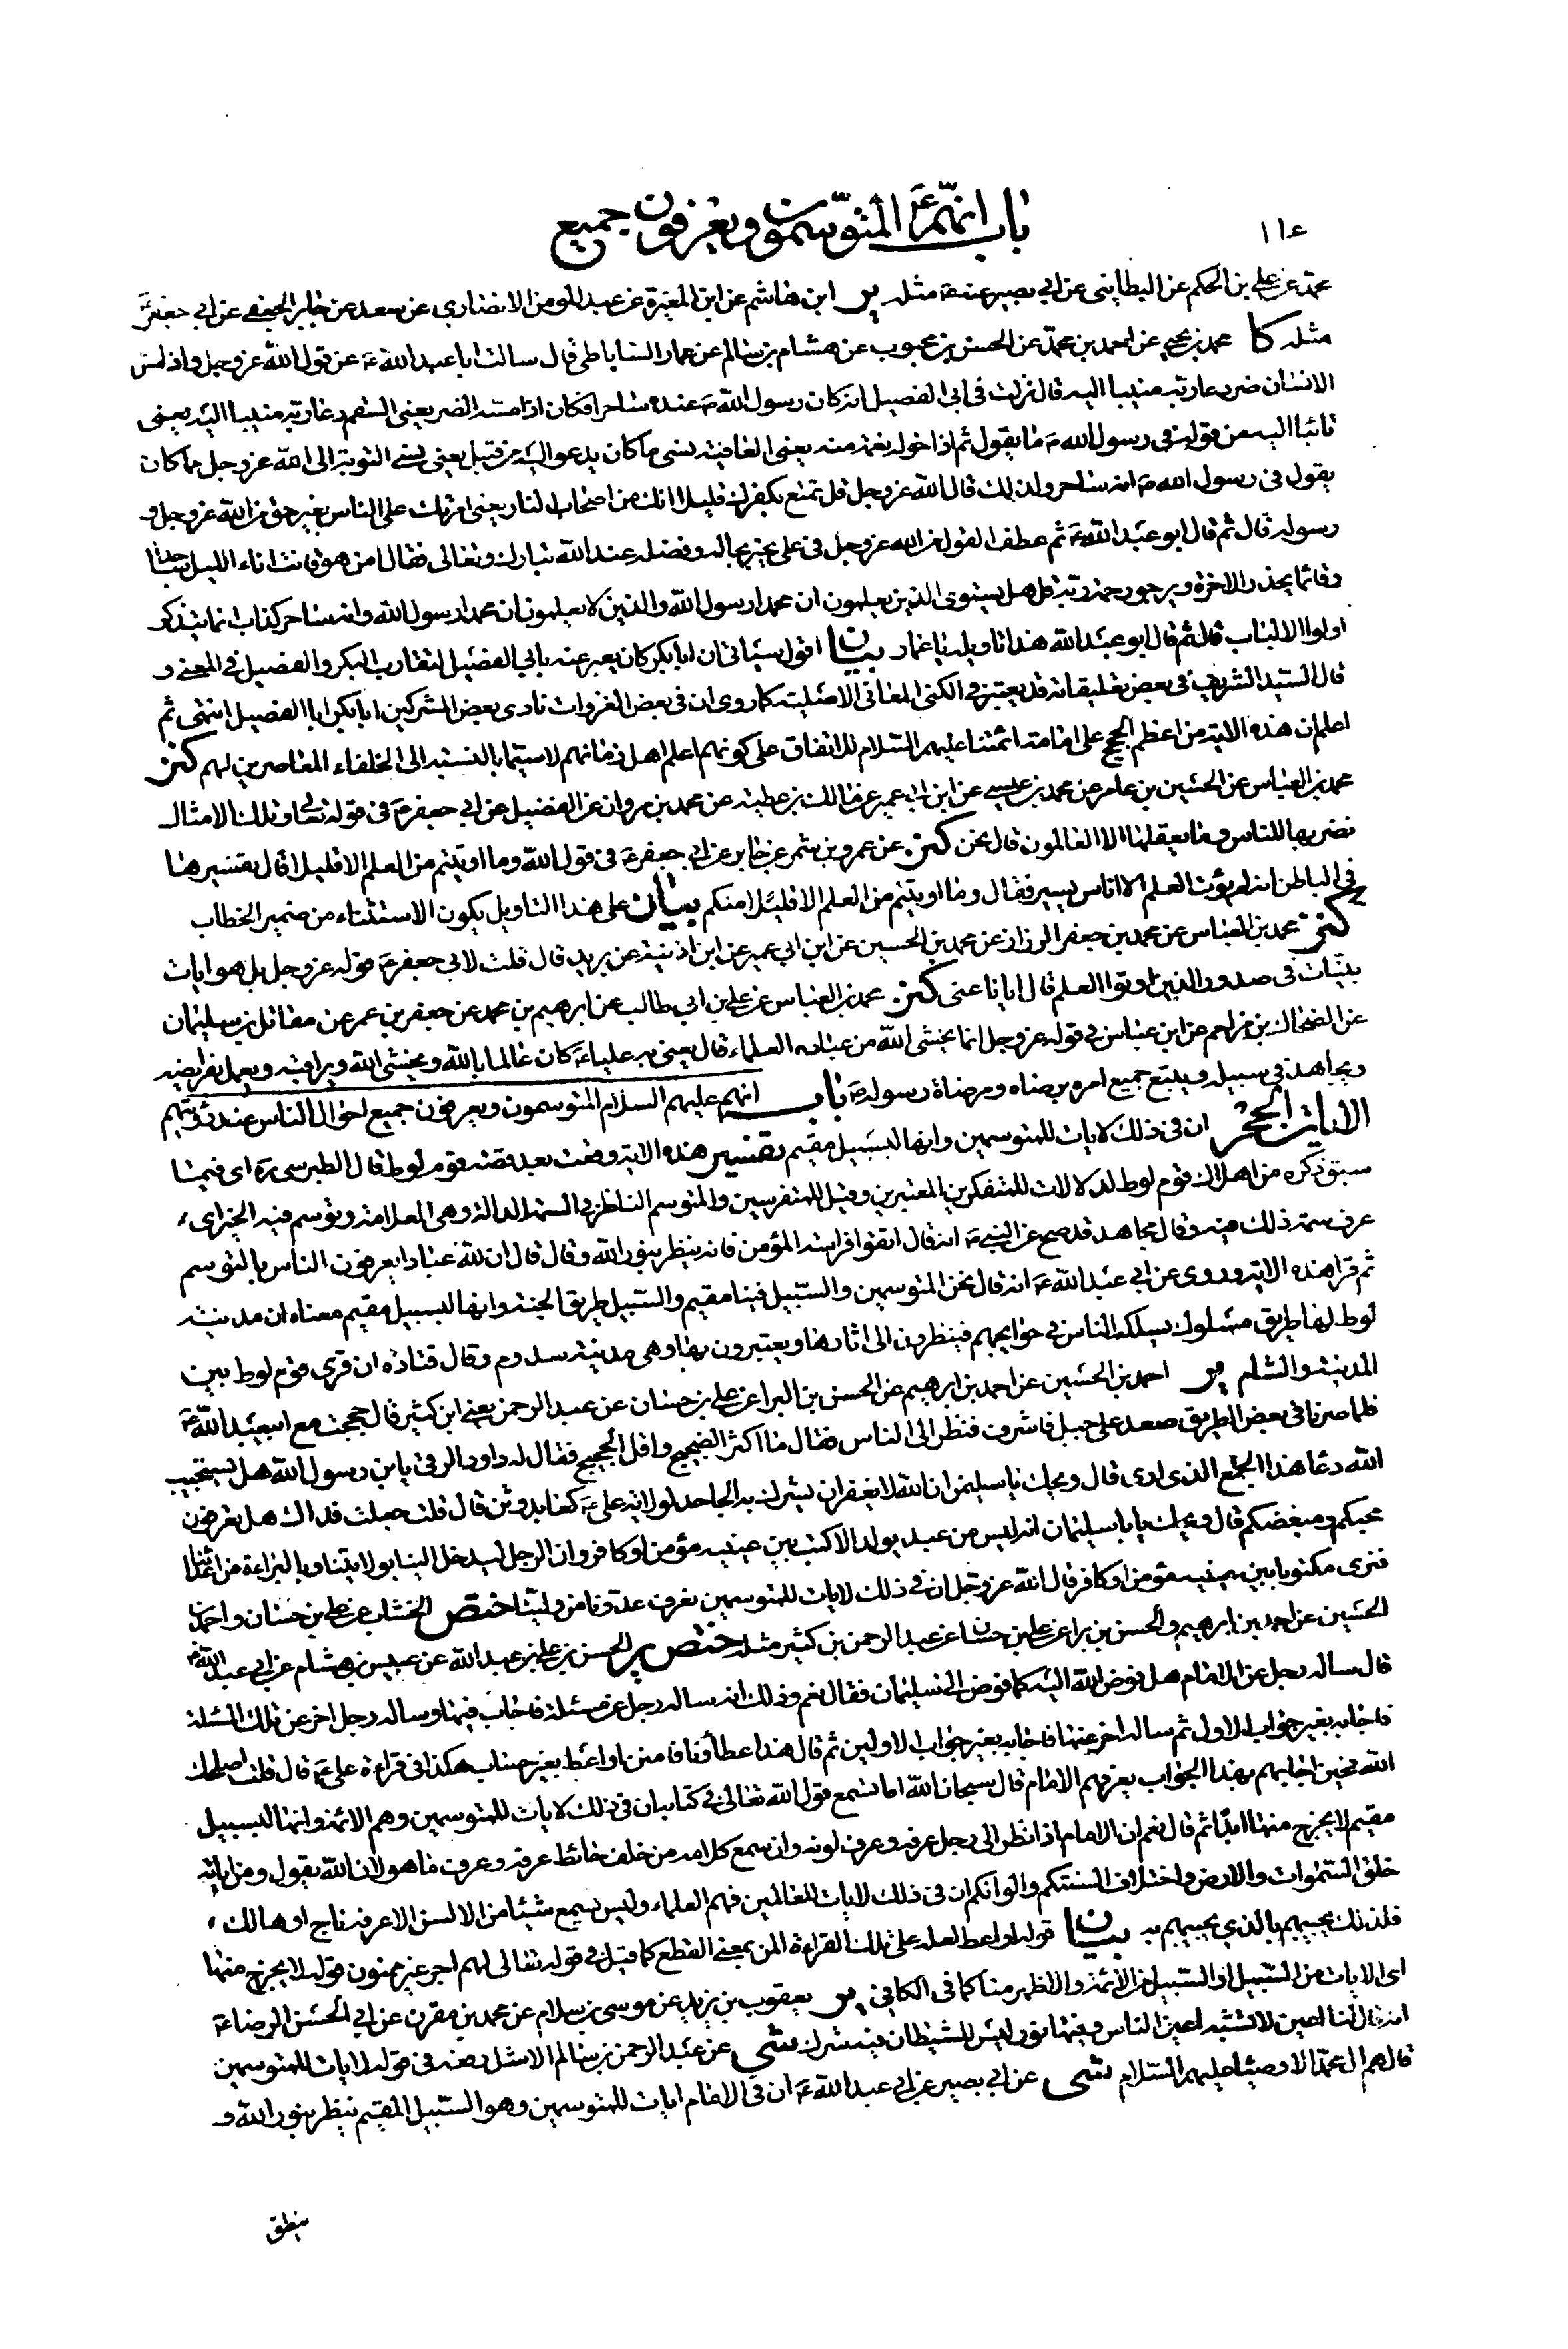 باب انهم ع المتوسمون ويعرفون جميع
١١٤
محمد عن علي بن الحكم عن البطايني عن ابي بصير عنه ع مثله ير ابن هاشم عن ابن المغيرة عن عبد المؤمن الانصاري عن سعد عن جابر الجعفي عن ابي جعفر ع
مثله كا محمد بن يحيى عن احمد بن محمد عن الحسن بن محبوب عن هشام بن سالم عن عمار الساباطي قال سالت ابا عبد الله ع عن قول الله عز وجل واذا مس
الانسان ضر دعا ربه منيبا اليه قال نزلت في ابي الفصيل انه كان رسول الله ص عنده ساحرا فكان اذا مسه الضر يعني السقم دعا ربه منيبا اليه يعني
تائبا اليه من قوله في رسول الله ص ما يقول ثم اذا خوله نعمة منه يعني العافية نسي ما كان يدعو اليه من قبل يعني نسي التوبة الى الله عز وجل مما كان
يقول في رسول الله ص انه ساحر ولذلك قال الله عز وجل قل تمتع بكفرك قليلا انك من اصحاب النار يعني امرتك على الناس بغير حق من الله عز وجل و
رسوله قال ثم قال ابو عبد الله ع ثم عطف القول من الله عز وجل في علي يخبر بحاله وفضله عند الله تبارك وتعالى فقال امن هو قانت اناء الليل ساجدا
وقائما يحذر الاخرة ويرجو رحمة ربه قل هل يستوي الذين يعلمون ان محمدا رسول الله والذين لا يعلمون ان محمدا رسول الله وانه ساحر كذاب انما يتذكر
اولوا الالباب قال ثم قال ابو عبد الله هذا تاويله يا عمار بيان اقول سياتي ان ابا بكر كان يعبر عنه بابي الفصيل لتقارب البكر والفصيل في المعنى و
قال السيد الشريف في بعض تعليقاته قد يعتبر في الكنى المعاني الاصلية كما روي ان في بعض الغزوات نادى بعض المشركين ابا بكر ابا الفصيل انتهى ثم
اعلم ان هذه الاية من اعظم الحجج على امامة ائمتنا عليهم السلام للاتفاق على كونهم اعلم اهل زمانهم لا سيما بالنسبة الى الخلفاء المعاصرين لهم كنز
محمد بن العباس عن الحسين بن عامر عن محمد بن عيسى عن ابن ابي عمير عن مالك بن عطية عن محمد بن مروان عن الفضيل عن ابي جعفر ع في قوله تعالى وتلك الامثال
نضربها للناس وما يعقلها الا العالمون قال نحن كنز عن عمرو بن شمر عن جابر عن ابي جعفر ع في قول الله وما اوتيتم من العلم الا قليلا قال تفسيرها
في الباطن انه لم يؤت العلم الا اناس يسير فقال وما اوتيتم من العلم الا قليلا منكم بيان على هذا التاويل يكون الاستثناء من ضمير الخطاب
كنز محمد بن العباس عن محمد بن جعفر الرزاز عن محمد بن الحسين عن ابن ابي عمير عن ابن اذينة عن بريد قال قلت لابي جعفر ع قوله عز وجل بل هو ايات
بينات في صدور الذين اوتوا العلم قال ايانا عنى كنز محمد بن العباس عن علي بن ابي طالب عن ابرهيم بن محمد عن جعفر بن عمر عن مقاتل بن سليمان
عن الضحاك بن مزاحم عن ابن عباس في قوله عز وجل انما يخشى الله من عباده العلماء قال يعني به عليا ع كان عالما بالله ويخشى الله ويراقبه ويعمل بفرايضه
ويجاهد في سبيله ويتبع جميع امره برضاه ومرضاة رسوله ص باب انهم عليهم السلام المتوسمون ويعرفون جميع احوال الناس عند رؤيتهم
الايات الحجر ان في ذلك لايات للمتوسمين وانها لبسبيل مقيم تفسير هذه الاية وقعت بعد قصة قوم لوط قال الطبرسي ره اي فيما
سبق ذكره من اهلاك قوم لوط لدلالات للمتفكرين المعتبرين وقيل للمتفرسين والمتوسم الناظر في السمة الدالة وهي العلامة وتوسم فيه الخير اي
عرف سمة ذلك فيه وقال مجاهد قد صح عن النبي ص انه قال اتقوا فراسة المؤمن فانه ينظر بنور الله وقال قال ان لله عبادا يعرفون الناس بالتوسم
ثم قرا هذه الاية وروي عن ابي عبد الله ع انه قال نحن المتوسمين والسبيل فينا مقيم والسبيل طريق الجنة وانها لبسبيل مقيم معناه ان مدينة
لوط لها طريق مسلوك يسلكه الناس في حوايجهم فينظرون الى اثارها ويعتبرون بها وهي مدينة سدوم وقال قتادة ان قرى قوم لوط بين
المدينة والشام ير احمد بن الحسين عن احمد بن ابرهيم عن الحسن بن البرا عن علي بن حسان عن عبد الرحمن يعني ابن كثير قال حججت مع ابي عبد الله ع
فلما صرنا في بعض الطريق صعد على جبل فاشرف فنظر الى الناس فقال ما اكثر الضجيج واقل الحجيج فقال له داود الرقي يا بن رسول الله هل يستجيب
الله دعا هذا الجمع الذي ارى قال ويحك يا با سليمن ان الله لا يغفر ان يشرك به الجاحد لولاية علي ع كعابد وثن قال قلت جعلت فداك هل تعرفون
محبكم ومبغضكم قال ويحك يا با سليمان انه ليس من عبد يولد الا كتب بين عينيه مؤمن او كافر وان الرجل ليدخل الينا بولايتنا وبالبراءة من اعدائنا
فنرى مكتوبا بين عينيه مؤمن او كافر قال الله عز وجل ان في ذلك لايات للمتوسمين نعرف عدونا من ولينا ختص الخشاب عن علي بن حسان واحمد بن
الحسين عن احمد بن ابرهيم والحسن بن برا عن علي بن حسان عن عبد الرحمن بن كثير مثله ختص ير الحسن بن علي بن عبد الله عن عبيس بن هشام عن ابي عبد الله ع
قال ساله رجل عن الامام هل فوض الله اليه كما فوض الى سليمان فقال نعم وذلك انه ساله رجل عن مسئلة فاجاب فيها وساله رجل اخر عن تلك المسئلة
فاجابه بغير جواب الاول ثم ساله اخر عنها فاجابه بغير جواب الاولين ثم قال هذا عطاؤنا فامنن او اعط بغير حساب هكذا في قراءة علي ع قال قلت اصلحك
الله فحين اجابهم بهذا الجواب يعرفهم الامام قال سبحان الله اما تسمع قول الله تعالى في كتابه ان في ذلك لايات للمتوسمين وهم الائمة وانها لبسبيل
مقيم لا يخرج منها ابدا ثم قال نعم ان الامام اذا نظر الى رجل عرفه وعرف لونه وان سمع كلامه من خلف حائط عرفه وعرف ما هو لان الله يقول ومن اياته
خلق السموات والارض واختلاف السنتكم والوانكم ان في ذلك لايات للعالمين فهم العلماء وليس يسمع شيئا من الالسن الا عرفه ناج او هالك
فلذلك يجيبهم بالذي يجيبهم به بيان قوله او اعط لعله على تلك القراءة المن بمعنى القطع كما قيل في قوله تعالى لهم اجر غير ممنون قوله لا يخرج منها
اي الايات من السبيل او السبيل من الائمة والاظهر منا كما في الكافي ير يعقوب بن يزيد عن موسى بن سلام عن محمد بن مقرن عن ابي الحسن الرضا ع
انه قال لنا اعين لا تشبه اعين الناس وفيها نور ليس للشيطان فيه شرك شي عن عبد الرحمن بن سالم الاشل رفعه في قوله لايات للمتوسمين
قال هم ال محمد الاوصياء عليهم السلام شي عن ابي بصير عن ابي عبد الله ع ان في الامام ايات للمتوسمين وهو السبيل المقيم ينظر بنور الله و
ينطق